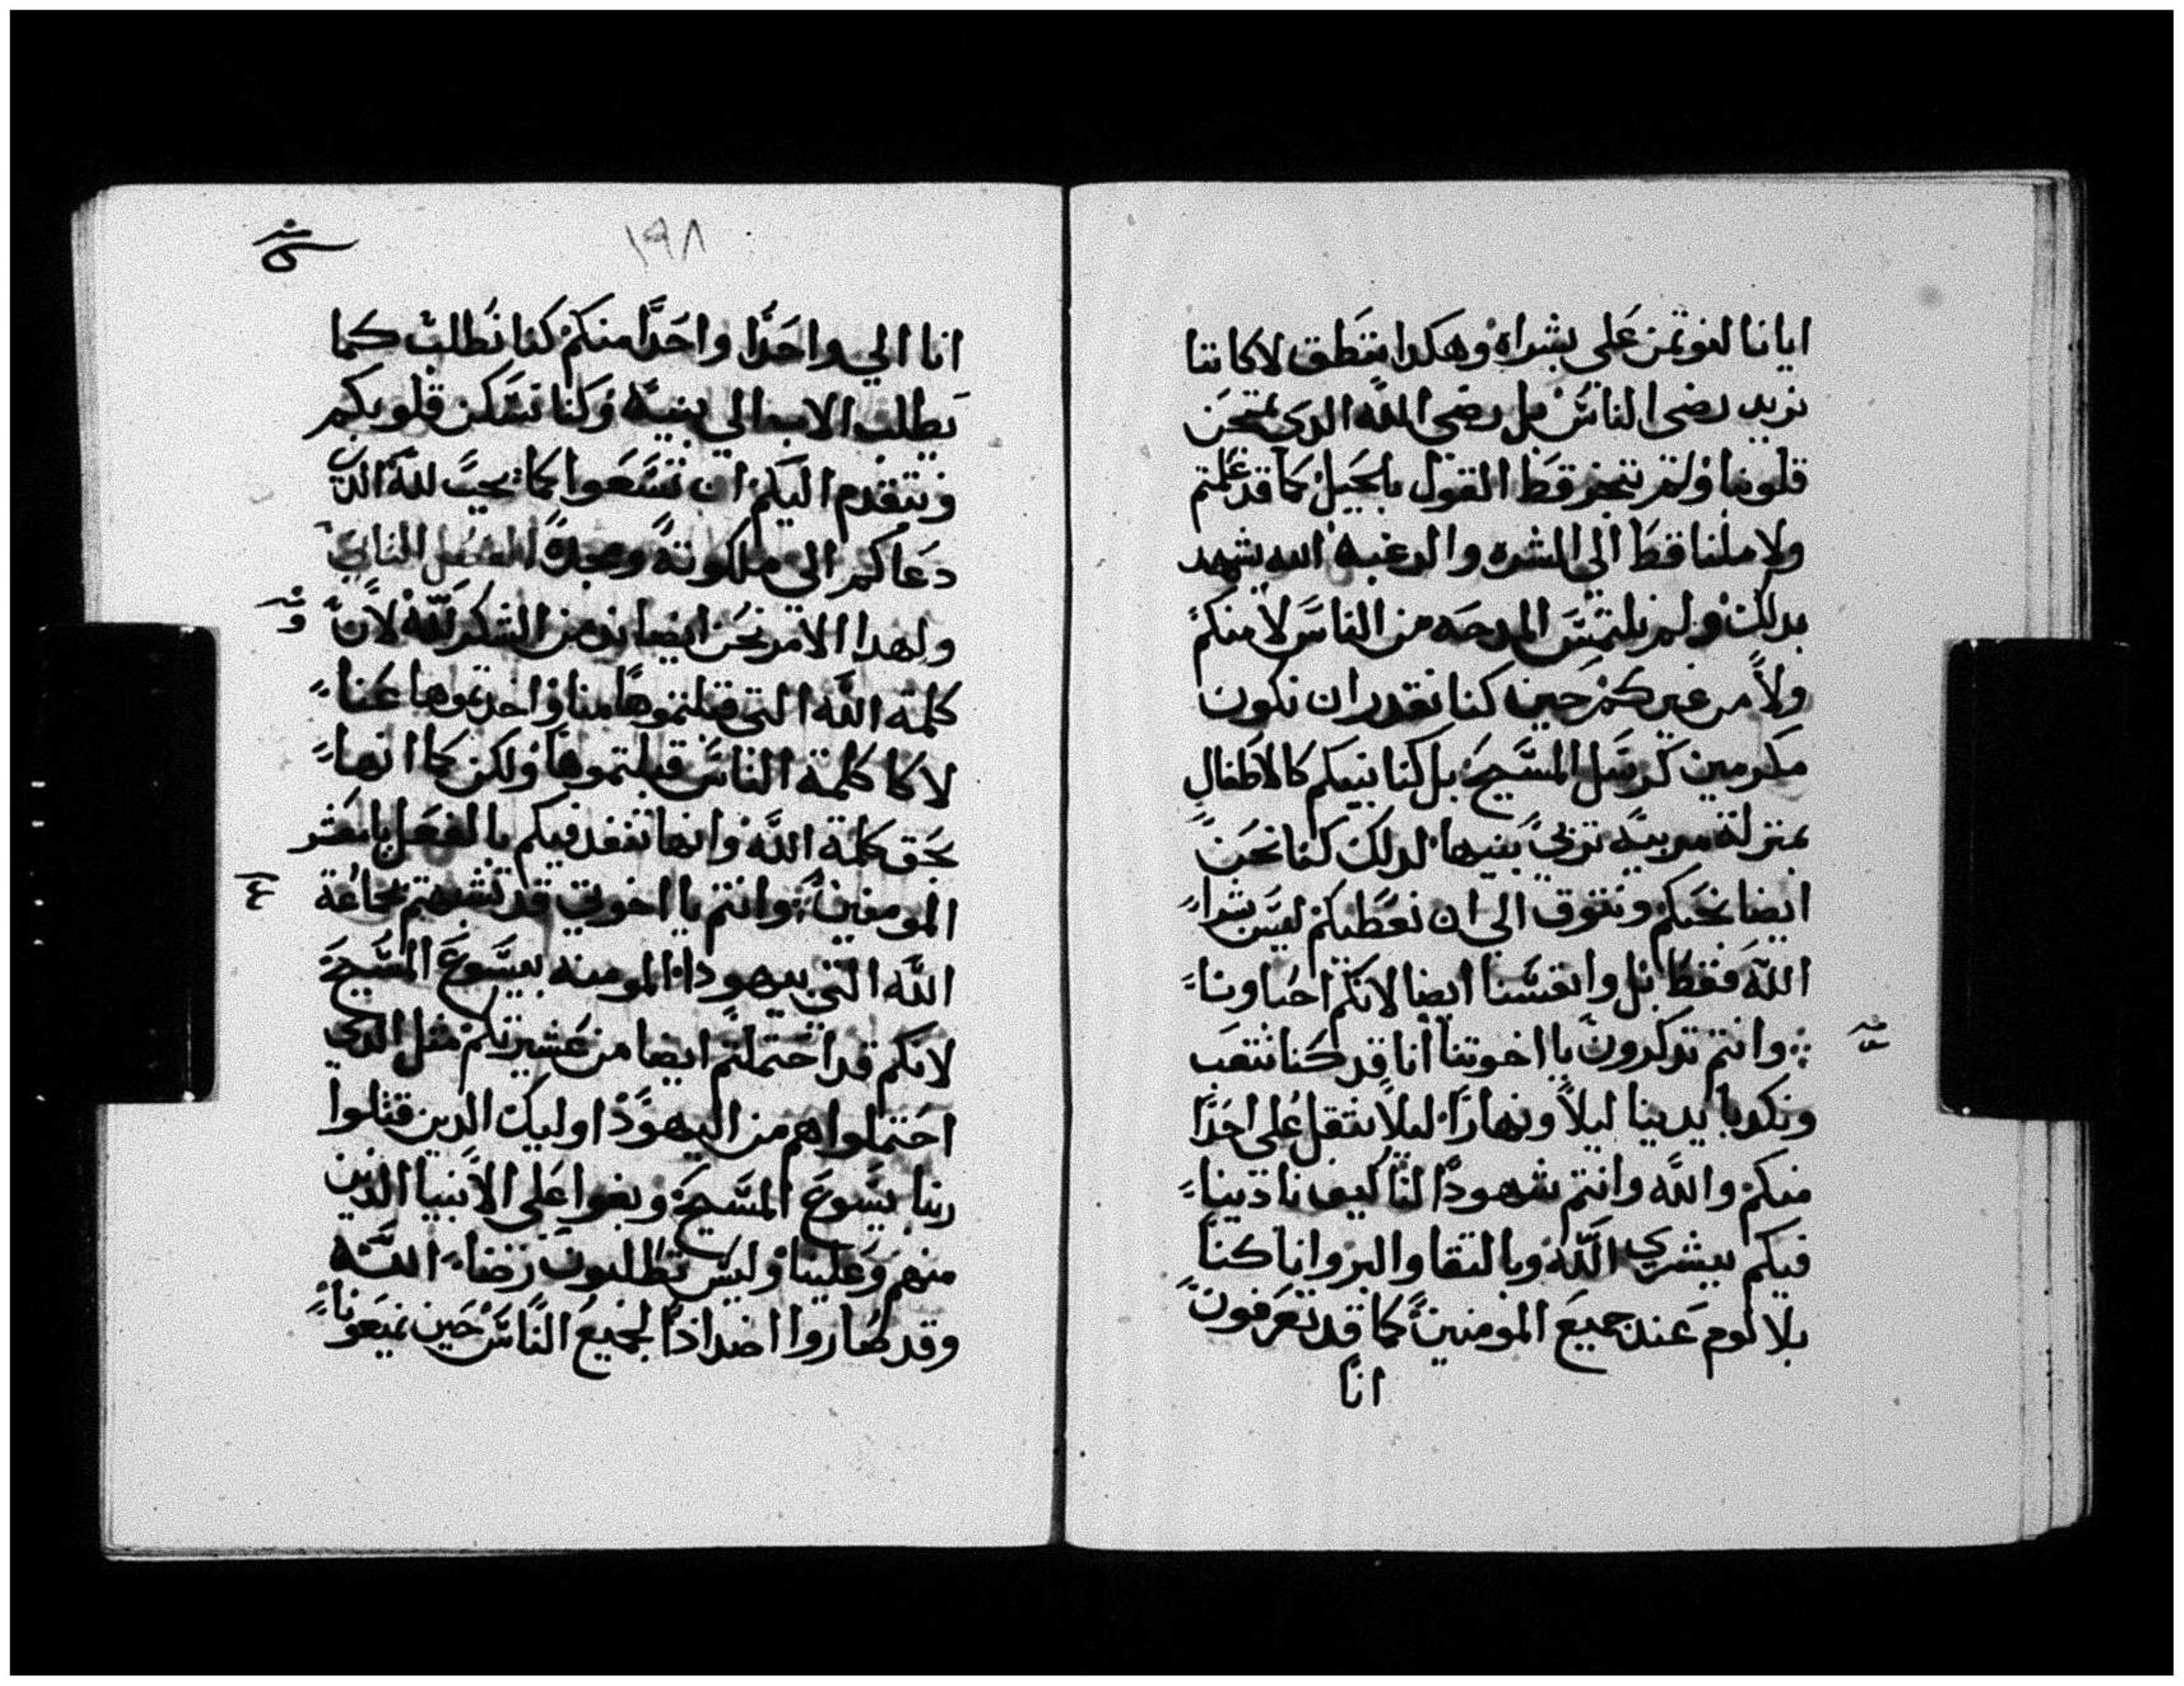 ايانا لنوتمن على بشراه وهكدا ننطق لا كاننا
نريد رضى الناس بل رضى الله الدى يمتحن
قلوبنا ولم نتجر قط القول بالجيل كما قد علمتم
ولا ملنا قط الى الشره والرغبه الله يشهد
بدلك ولم نلتمس المدحه من الناس لا منكم
ولا من غيركم حين كنا نقدر ان نكون
مكرمين كرسل المسيح بل كنا بينكم كالاطفال
بمنزلة مربيه تربي بنيها لدلك كنا نحن
ايضا نحبكم ونتوق الى ان نعطيكم ليس بشرا
الله فقط بل وانفسنا ايضا لانكم احباونا
وانتم تدكرون يا اخوتنا انا قد كنا نتعب
ونكد بايدينا ليلا ونهارا ليلا نثقل على احدا
منكم والله وانتم شهودا لنا كيف نادينا
فيكم ببشري الله وبالتقا والبر وانا كنا
بلا لوم عند جميع المومنين كما قد تعرفون
انا
١٩٨
انا الي واحدا واحدا منكم كنا نطلب كما
يطلب الاب الي بنيه وكنا نسكن قلوبكم
ونتقدم اليكم ان تسعوا كما يحب لله الدي
دعاكم الى ملكوته ومجده الفصل الثاني
ولهدا الامر نحن ايضا ندمن الشكر لله لان
كلمة الله التي قبلتموها منا واخدتموها عنا
لا كما كلمة الناس قبلتموها ولكن كما انها
بحق كلمة الله وانها تنفد فيكم بالفعل يا معشر
المومنين وانتم يا اخوتي قد تشبهتم بجاعة
الله التي بيهودا المومنه بيسوع المسيح
لانكم قد احتملتم ايضا من عشيرتكم مثل الدي
احتملوا هم من اليهود اوليك الدين قتلوا
ربنا يسوع المسيح وبغوا على الانبيا الدين
منهم وعلينا وليس يطلبون رضا الله
وقد صاروا اضدادا لجميع الناس حين يمنعونا